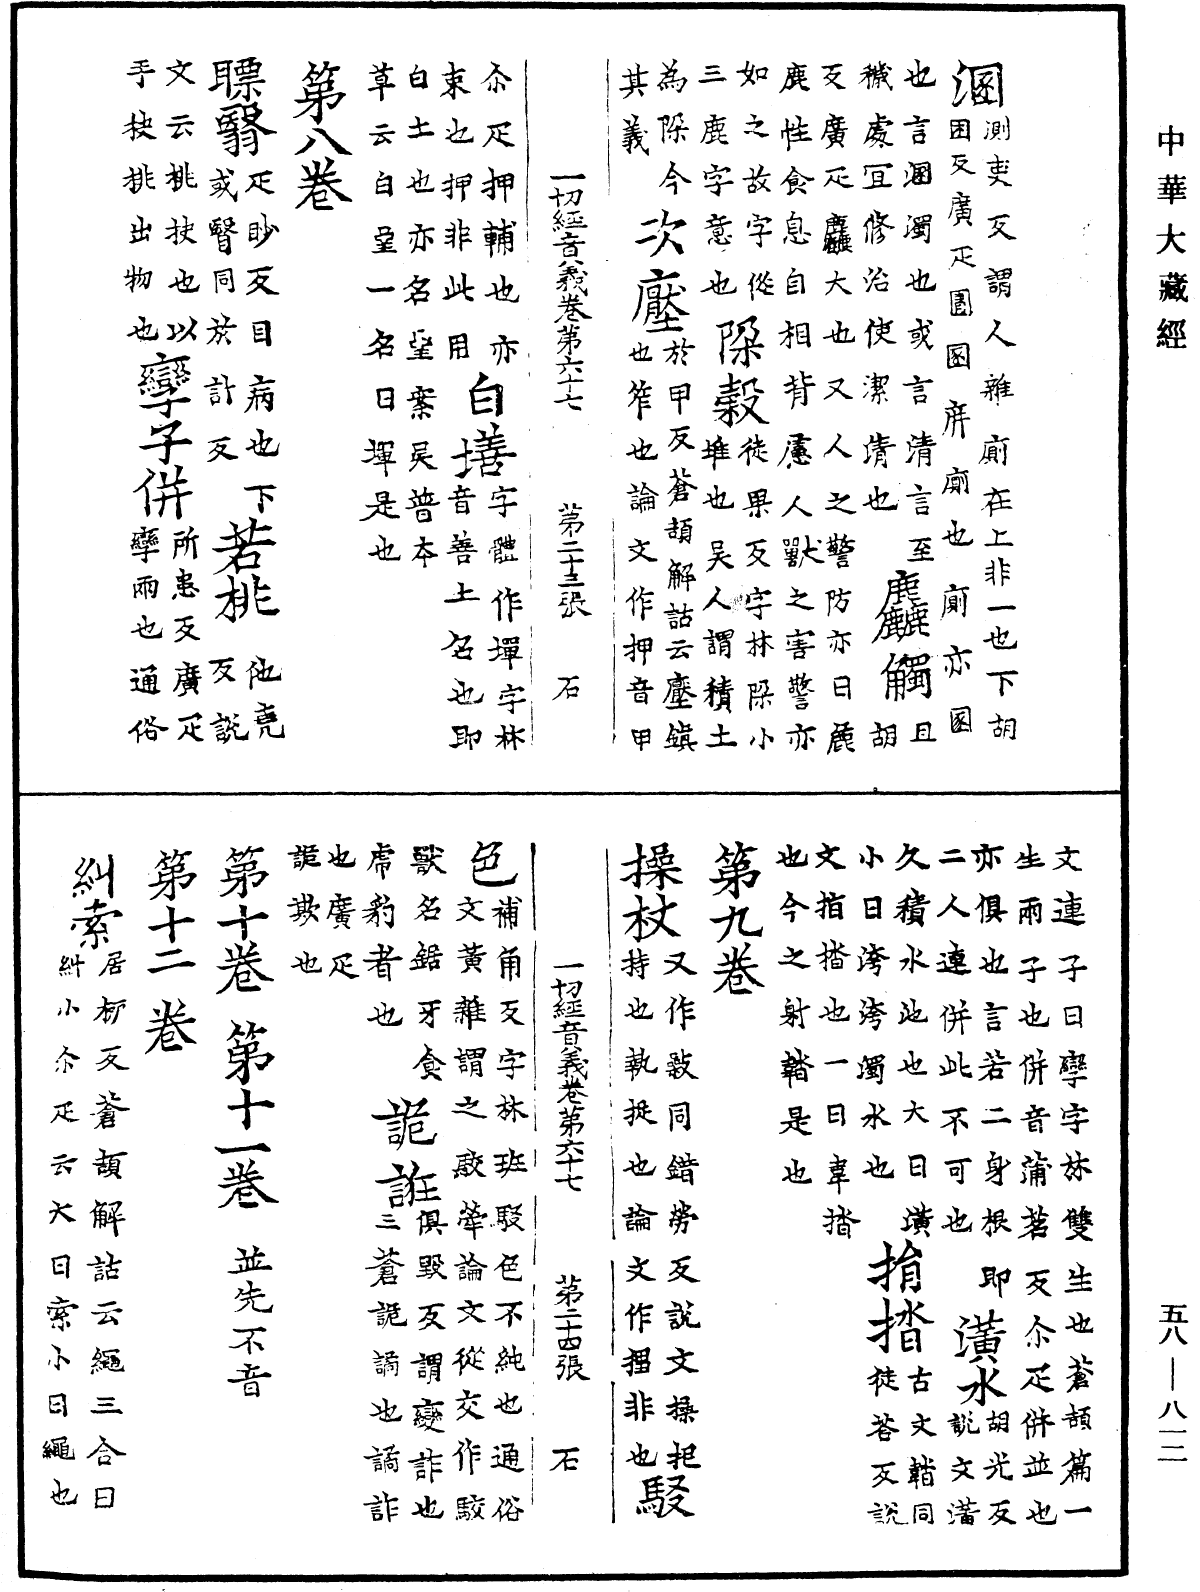 中華大藏經
溷 測吏反謂人雜廁在上非一也下胡
困反廣疋圂圂屏廁也廁亦圂
也言溷濁也或言清言至
穢處宜修治使潔清也 麤觸 且胡
反廣疋麤大也又人之警防亦曰麁
鹿性食息自相背慮人獸之害警亦
如之故字從三鹿字意也 堆穀 徒果反字林垛小
堆也吳人謂積土
為垛今 次壓 於甲反蒼頡解詁云壓鎮
也笮也論文作押音甲
其義
一切經音義卷第六十七 第二十三張 石
尒疋押輔也亦
束也押非此用 白墡 字體作墠字林
音善土名也即
白土也亦名堊案吳普本
草云白堊一名曰墠是也
第八卷
瞟翳 疋眇反目病也下
或瞖同於計反 若桃 他堯
反說
文云挑抉也以
手抉挑出物也 孿子併 所患反廣疋
孿兩也通俗
文連子曰孿字林雙生也蒼頡篇一
生兩子也併音蒲茗反尒疋併並也
亦俱也言若二身根即
二人連併此不可也 潢水 胡光反
說文潢
久積水池也大曰潢
小曰洿洿濁水也 揹㳫 古文韜同
徒荅反說
文指揩也一曰韋揩
也今之射韜是也
第九卷
操杖 又作𢿾同錯勞反說文操把
持也執捉也論文作摺非也 駁
一切經音義卷第六十七 第二十四張 石
色 補角反字林班駁色不純也通俗
文黃雜謂之駁犖論文從交作駮
獸名鋸牙食
虎豹者也 詭誑 俱毀反謂變詐也
三蒼詭譎也譎詐
也廣疋
詭欺也
第十卷 第十一卷 並先不音
第十二卷
糾索 居柳反蒼頡解詁云繩三合曰
糾小尒疋云大曰索小曰繩也
五八—八一二